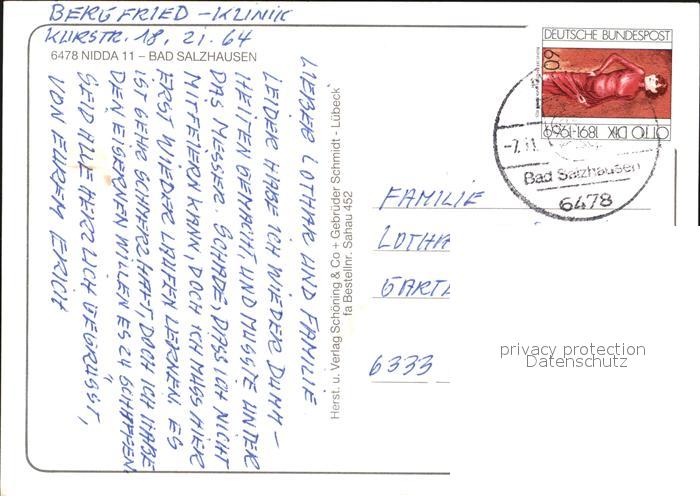 BERGFRIED - KLINIK
KURSTR. 18, ZI. 64
6478 NIDDA 11 – BAD SALZHAUSEN
LIEBER LOTHAR UND FAMILIE
LEIDER HABE ICH WIEDER DUMM-
HEITEN GEMACHT, UND MUSSTE UNTER
DAS MESSER. SCHADE, DAS ICH NICHT
MITFEIERN KANN, DOCH ICH MUSS HIER
ERST WIEDER LAUFEN LERNEN. ES
IST SEHR SCHMERZHAFT, DOCH ICH HABE
DEN EISERNEN WILLEN ES ZU SCHAFFEN
SEID ALLE HERZLICH GEGRÜSST,
VON EUREM ERICH
Herst. u. Verlag Schöning & Co + Gebrüder Schmidt - Lübeck
fa Bestellnr. Sahau 452
DEUTSCHE BUNDESPOST
60
OTTO DIX 1891-1969
-7.11.
Bad Salzhausen
6478
FAMILIE
LOTHA
GARTA
6333
privacy protection
Datenschutz